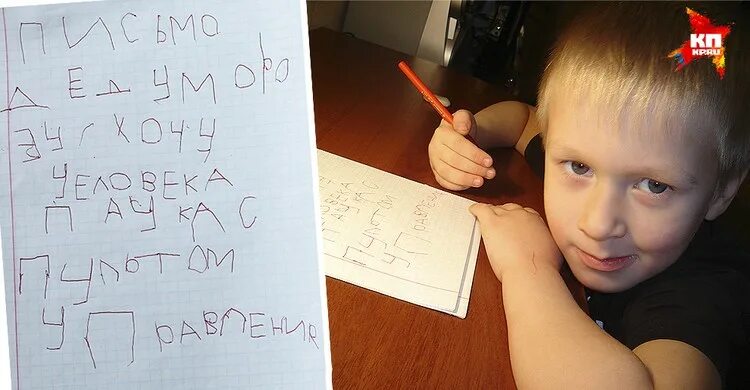 ПИСЬМО
ДЕДУ МОРО
ЗУ ХОЧУ
ЧЕЛОВЕКА
ПАУКА С
ПУЛЬТОМ
У ПРАВЛЕНИЯ
КП
KP.RU